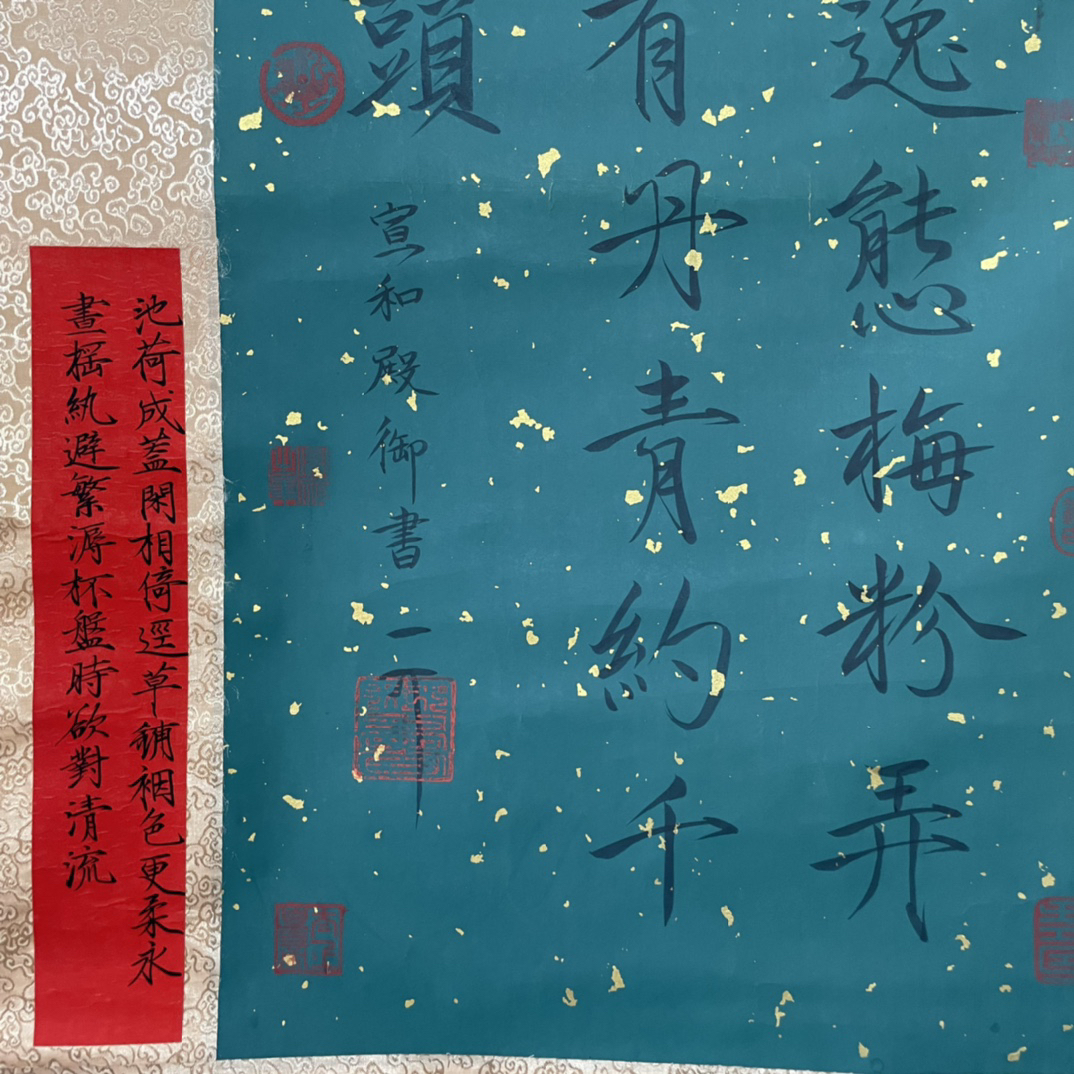 逸態梅粉弄
有丹青約千
頭
宣和殿御書
池荷成蓋閑相倚逕草鋪裀色更柔永
晝搖紈避繁溽杯盤時欲對清流